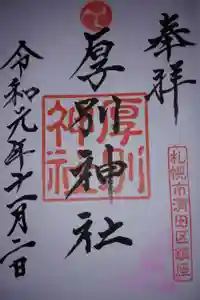 奉拝
厚別神社
厚別
神社
令和元年十一月二日
札幌市清田区鎮座